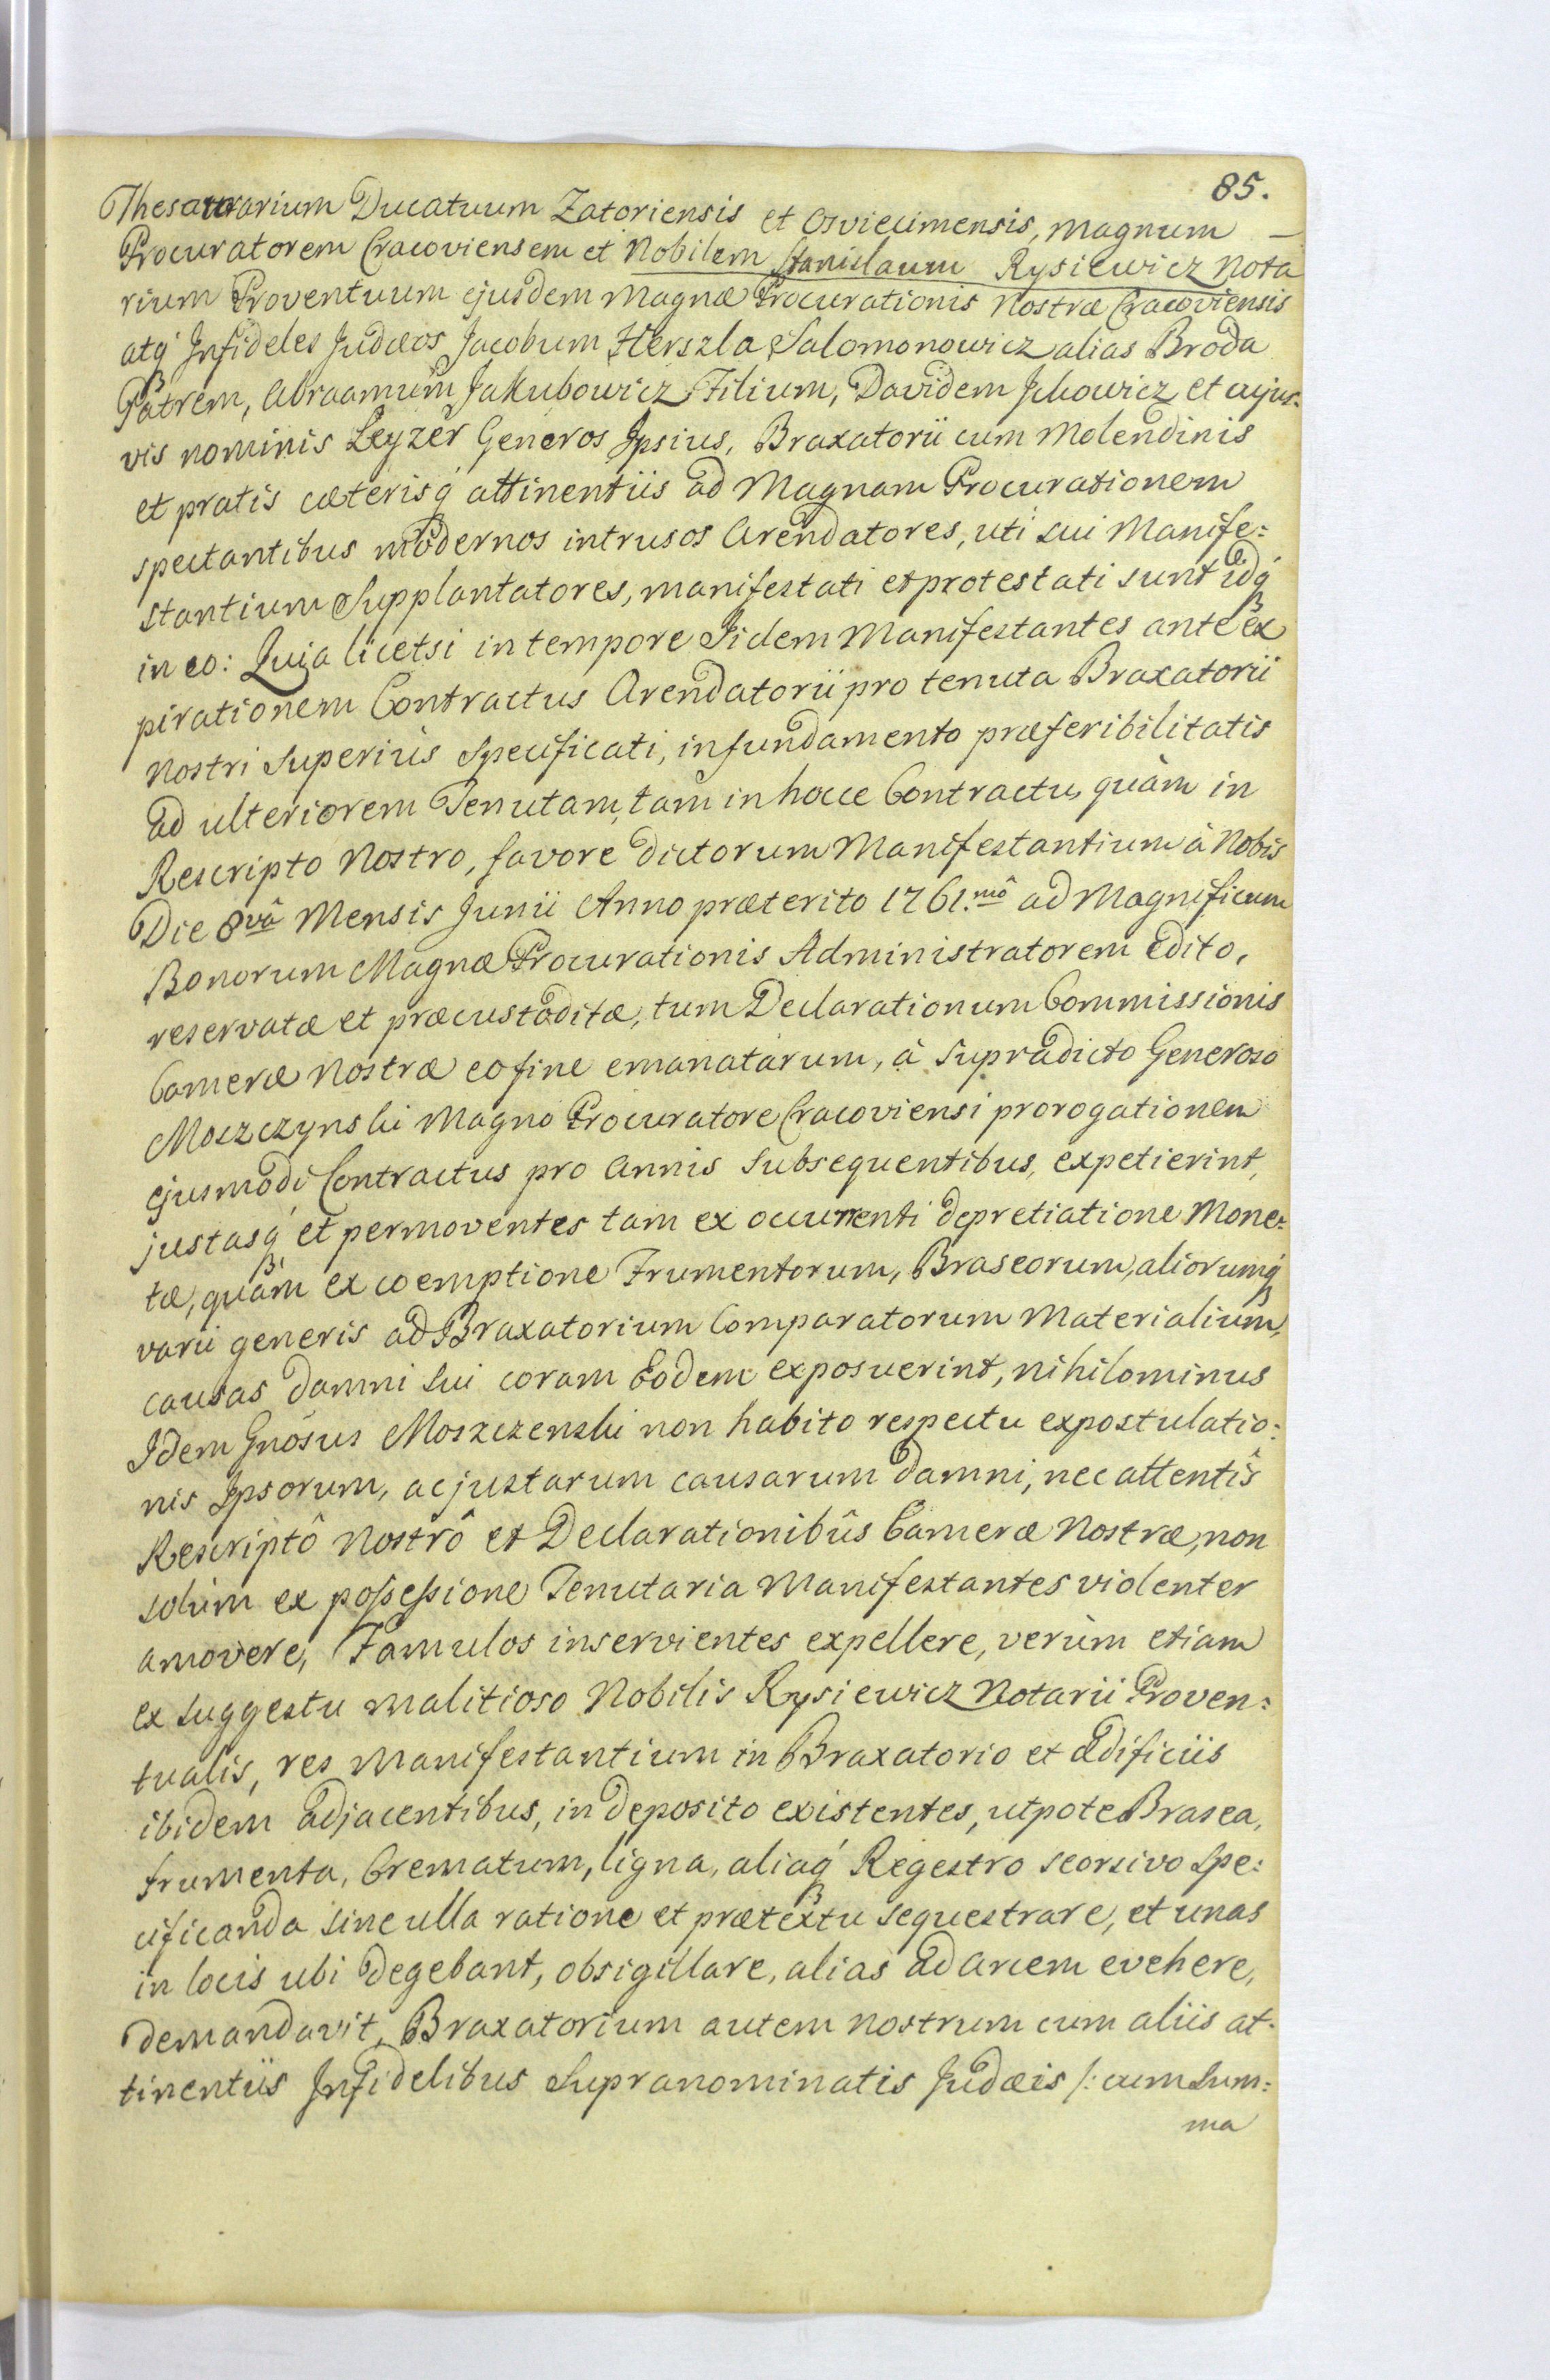 85.
Thesaurarium Ducatuum Zatoriensis et Osviecimensis, Magnum —
Procuratorem Cracoviensem et Nobilem Stanislaum Rysiewicz Nota
rium Proventuum ejusdem Magnæ Procurationis Nostræ Cracoviensis
atq́ Infideles Judæos Jacobum Herszla Salomonowicz alias Broda
Patrem, Abraamum Jakubowicz Filium, Davidem Ickowicz et cujus-
vis nominis Leyzer Generos Ipsius, Braxatorii cum Molendinis
et pratis cæterisq́ attinentiis ad Magnam Procurationem
spectantibus modernos intrusos Arendatores, uti sui Manife:
stantium Supplantatores, manifestati et protestati sunt idq́
in eo: Quia licetsi in tempore Iidem Manifestantes ante ex
pirationem Contractus Arendatorii pro tenuta Braxatorii
Nostri superius specificati, in fundamento præferibilitatis
ad ulteriorem Tenutam, tam in hocce Contractu, quàm in
Rescripto Nostro, favore dictorum Manifestantium à Nobis
Die 8vâ Mensis Junii Anno præterito 1761.mô ad Magnificum
Bonorum Magnæ Procurationis Administratorem edito,
reservatæ et præcustoditæ, tum Declarationum Commissionis
Cameræ Nostræ eo fine emanatarum, à supradicto Generoso
Moszczynski Magno Procuratore Cracoviensi prorogationem
ejusmodi Contractus pro Annis subsequentibus, expetierint,
justasq́ et permoventes tam ex occurrenti depretiatione Mone:
tæ, quàm ex coemptione Frumentorum, Braseorum, aliorumq́
varii generis ad Braxatorium Comparatorum Materialium,
causas damni sui coram Eodem exposuerint, nihilominus
Idem Gnosus Moszczenski non habito respectu expostulatio:
nis Ipsorum, ac justarum causarum damni, nec attentîs
Rescriptô Nostrô et Declarationibûs Cameræ Nostræ, non
solùm ex possessione Tenutaria Manifestantes violenter
amovere, Famulos inservientes expellere, verùm etiam
ex suggestu malitioso Nobilis Rysiewicz Notarii Proven:
tualis, res Manifestantium in Braxatorio et Ædificiis
ibidem adjacentibus, in deposito existentes, utpote Brasea,
frumenta, Crematum, ligna, aliaq́ Regestro seorsivo spe:
cificanda sine ulla ratione et prætextu sequestrare, et unas
in locis ubi degebant, obsigillare, alias ad Arcem evehere,
demandavit, Braxatorium autem nostrum cum aliis at-
tinentiis Infidelibus Supranominatis Judæis /: cum Sum:
ma